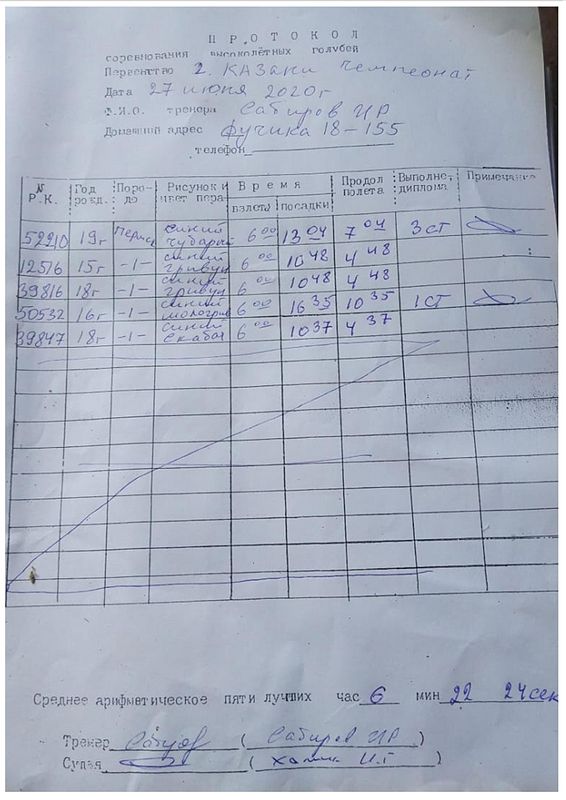 ПРОТОКОЛ
соревнования высоколётных голубей
Первенство 2. КАЗАНИ Чемпеонат
Дата 27 июня 2020г
Ф.И.О. тренера Сабиров ИР
Домашний адрес Фучика 18-155
телефон
№ Р.К. Год рожд. Поро-до Рисунок и цвет пера Время взлета посадки Продол полета Выполне. диплома Примечание
52210 19г Перис синий чубарый 6 00 13 04 7 04 3 ст
12516 15г -1- синий гривун 6 00 10 48 4 48
39816 18г -1- синий гривун 6 00 10 48 4 48
50532 16г -1- синий 6 00 16 35 10 35 1 ст
39847 18г -1- синий 6 00 10 37 4 37
Среднее арифметическое пяти лучших час 6 мин 22 24сек
Тренер (Сабиров ИР)
Судья ( И.Г )